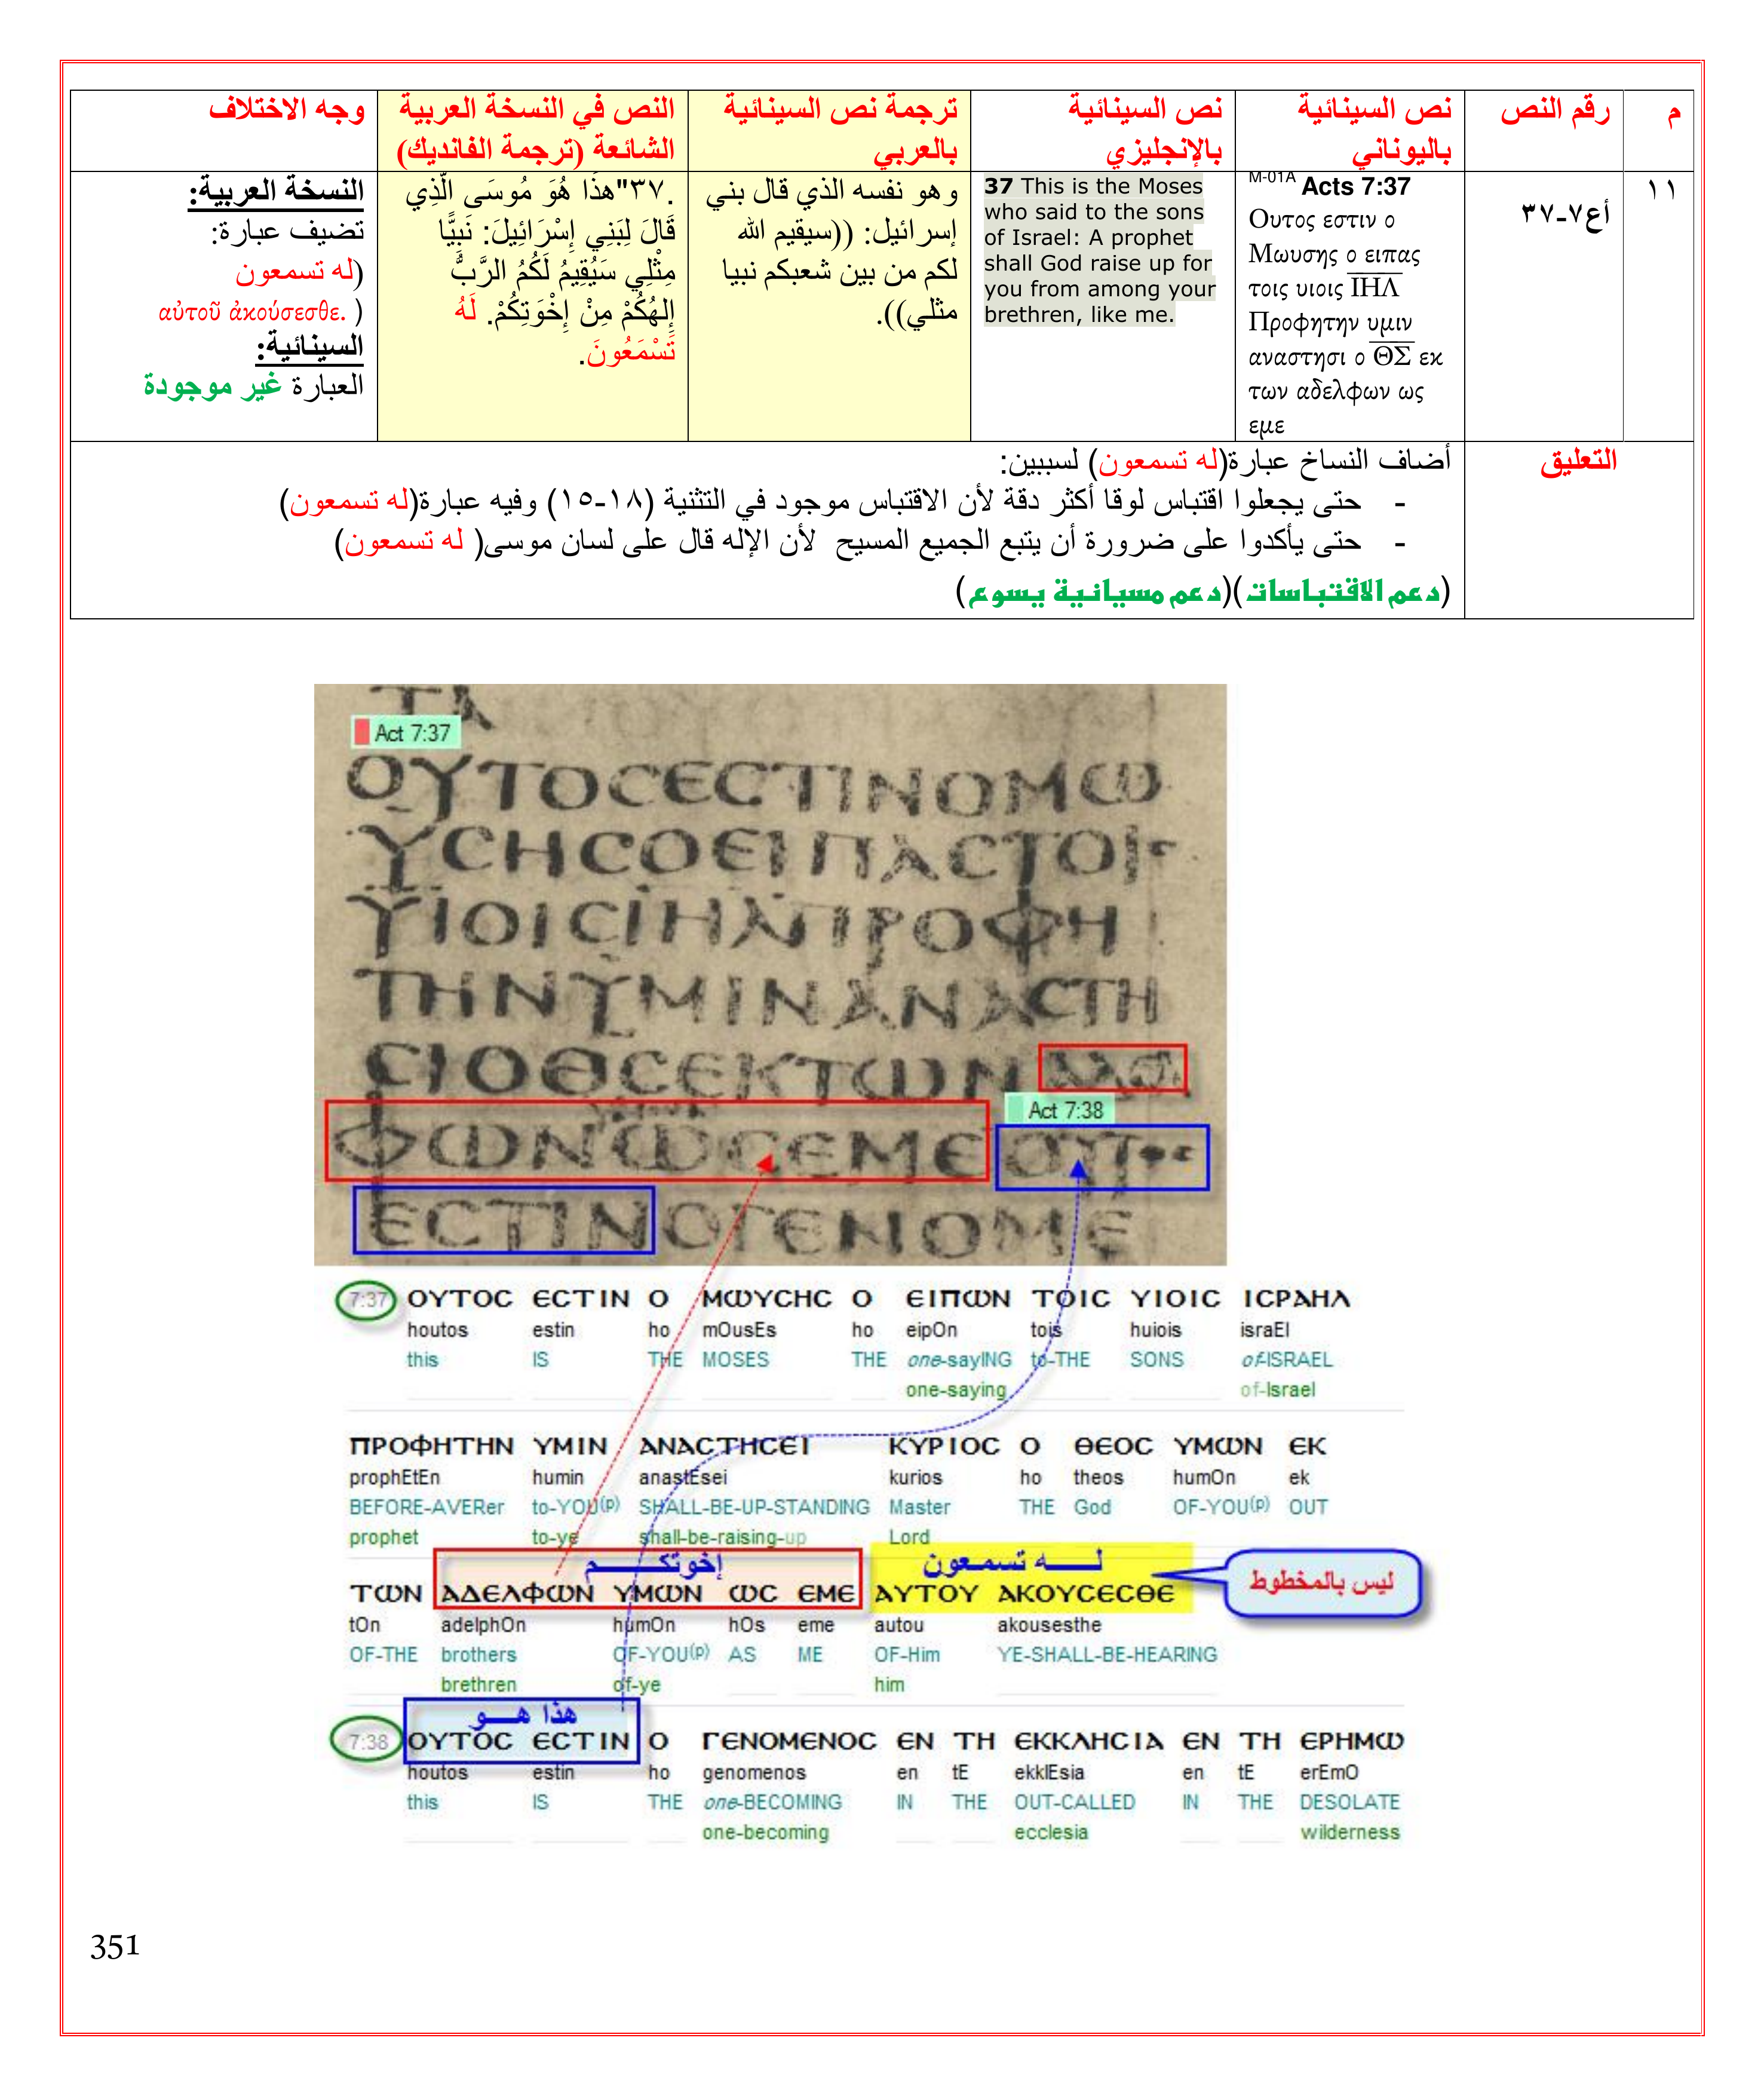 م
رقم النص
نص السينائية
باليوناني
نص السينائية
بالإنجليزي
ترجمة نص السينائية
بالعربي
النص في النسخة العربية
الشائعة (ترجمة الفانديك)
وجه الاختلاف
١١
أع٧-٣٧
M-01A Acts 7:37
Ουτος εστιν ο
Μωυσης ο ειπας
τοις υιοις ΙΗΛ
Προφητην υμιν
αναστησι ο ΘΣ εκ
των αδελφων ως
εμε
37 This is the Moses
who said to the sons
of Israel: A prophet
shall God raise up for
you from among your
brethren, like me.
وهو نفسه الذي قال بني
إسرائيل: ((سيقيم الله
لكم من بين شعبكم نبيا
مثلي)).
.٣٧"هذَا هُوَ مُوسَى الَّذِي
قَالَ لِبَنِي إِسْرَائِيلَ: نَبِيًّا
مِثْلِي سَيُقِيمُ لَكُمُ الرَّبُّ
إِلهُكُمْ مِنْ إِخْوَتِكُمْ. لَهُ
تَسْمَعُونَ.
النسخة العربية:
تضيف عبارة:
(له تسمعون
αὐτοῦ ἀκούσεσθε. )
السينائية:
العبارة غير موجودة
التعليق
أضاف النساخ عبارة(له تسمعون) لسببين:
- حتى يجعلوا اقتباس لوقا أكثر دقة لأن الاقتباس موجود في التثنية (١٨-١٥) وفيه عبارة(له تسمعون)
- حتى يأكدوا على ضرورة أن يتبع الجميع المسيح لأن الإله قال على لسان موسى( له تسمعون)
(دعم الاقتباسات)(دعم مسيانية يسوع)
Act 7:37
ΟΥΤΟϹΕϹΤΙΝΟΜΩ
ΥϹΗϹΟΕΙΠΑϹΤΟΙϹ
ΥΙΟΙϹΙΗΛΠΡΟΦΗ
ΤΗΝΥΜΙΝΑΝΑϹΤΗ
ϹΙΟΘϹΕΚΤΩΝ
Act 7:38
ΦΩΝΩϹΕΜΕΟΥΤΟϹ
ΕϹΤΙΝΟΓΕΝΟΜΕ
7:37 ΟΥΤΟϹ ΕϹΤΙΝ Ο ΜΩΥϹΗϹ Ο ΕΙΠΩΝ ΤΟΙϹ ΥΙΟΙϹ ΙϹΡΑΗΛ
houtos estin ho mOusEs ho eipOn tois huiois israEl
this IS THE MOSES THE one-sayING to-THE SONS of-ISRAEL
one-saying of-Israel
ΠΡΟΦΗΤΗΝ ΥΜΙΝ ΑΝΑϹΤΗϹΕΙ ΚΥΡΙΟϹ Ο ΘΕΟϹ ΥΜΩΝ ΕΚ
prophEtEn humin anastEsei kurios ho theos humOn ek
BEFORE-AVERer to-YOU(p) SHALL-BE-UP-STANDING Master THE God OF-YOU(p) OUT
prophet to-ye shall-be-raising-up Lord
إخوتكـــــم
لـــــه تسمعون
ليس بالمخطوط
ΤΩΝ ΑΔΕΛΦΩΝ ΥΜΩΝ ΩϹ ΕΜΕ ΑΥΤΟΥ ΑΚΟΥϹΕϹΘΕ
tOn adelphOn humOn hOs eme autou akousesthe
OF-THE brothers OF-YOU(p) AS ME OF-Him YE-SHALL-BE-HEARING
brethren of-ye him
هذا هـــو
7:38 ΟΥΤΟϹ ΕϹΤΙΝ Ο ΓΕΝΟΜΕΝΟϹ ΕΝ ΤΗ ΕΚΚΛΗϹΙΑ ΕΝ ΤΗ ΕΡΗΜΩ
houtos estin ho genomenos en tE ekklEsia en tE erEmO
this IS THE one-BECOMING IN THE OUT-CALLED IN THE DESOLATE
one-becoming ecclesia wilderness
351